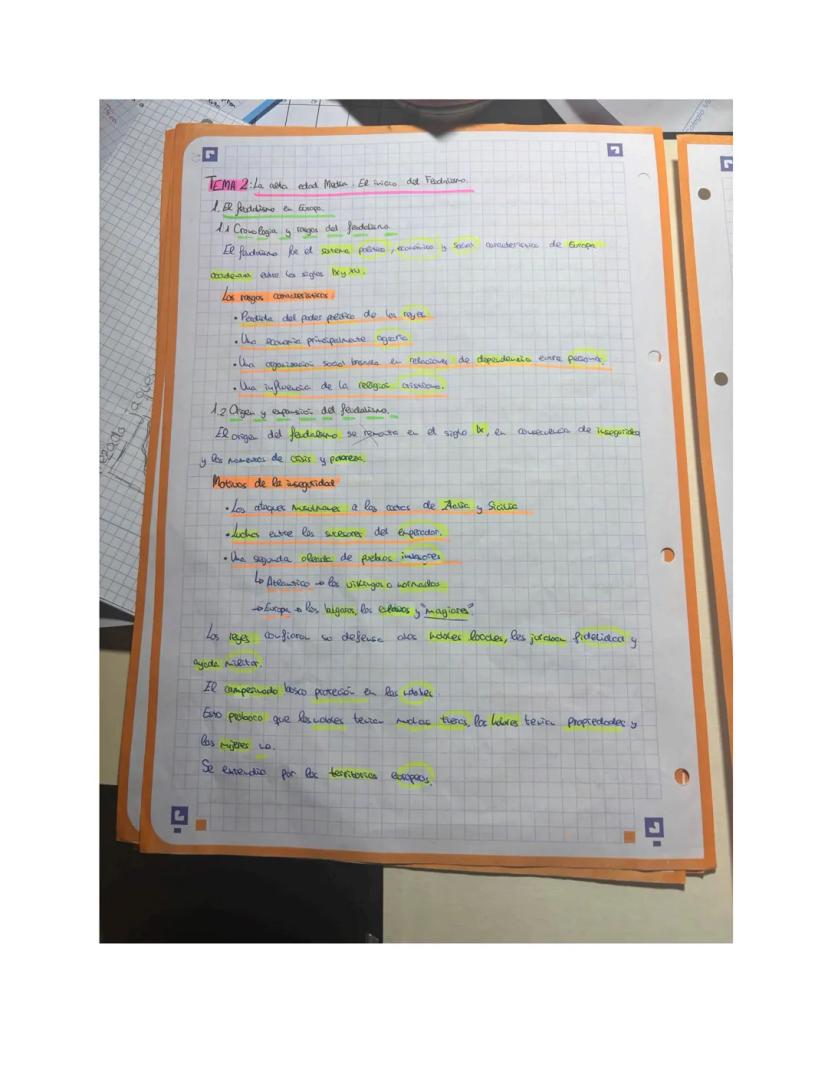 TEMA 2: La alta edad Media. El inicio del Feudalismo.
1. El feudalismo en Europa.
1.1 Cronología y rasgos del feudalismo
El feudalismo fue el sistema político, económico y social característico de Europa
occidental entre los siglos IX y XV.
Los rasgos característicos
• Perdida del poder político de los reyes
• Una economía principalmente agraria
• Una organización social basada en relaciones de dependencia entre personas.
• Una influencia de la religión cristiana.
1.2 Origen y expansión del feudalismo.
El origen del feudalismo se remonta en el siglo IX, en consecuencia de inseguridad
y los momentos de crisis y pobreza.
Motivos de la inseguridad
• Los ataques musulmanes a las costas de Italia y Sicilia
• Luchas entre los sucesores del emperador.
• Una segunda oleada de pueblos invasores
↳ Atlantico → los vikingos o normandos
→ Europa → los búlgaros, los eslavos y "magiares".
Los reyes confiaron su defensa a los nobles locales, les juraban fidelidad y
ayuda militar.
El campesinado busco protección en los nobles.
Esto proboco que los nobles tenian muchas tieras, los hombres tenian propiedades y
las mujeres no.
Se extendio por los territorios europeos.
Colegio